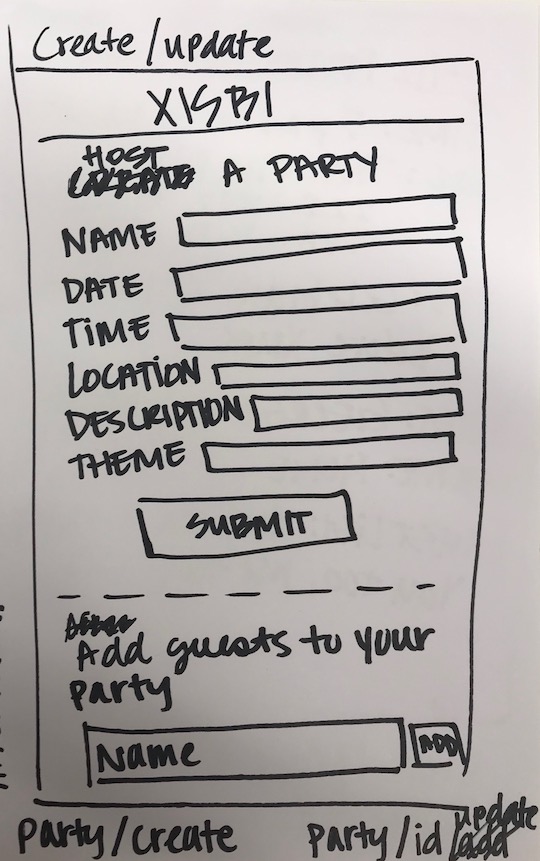 Create/update
XISBI
HOST
A PARTY
NAME
DATE
TIME
LOCATION
DESCRIPTION
THEME
SUBMIT
Add guests to your
party
Name ADD
party/create party/id/update